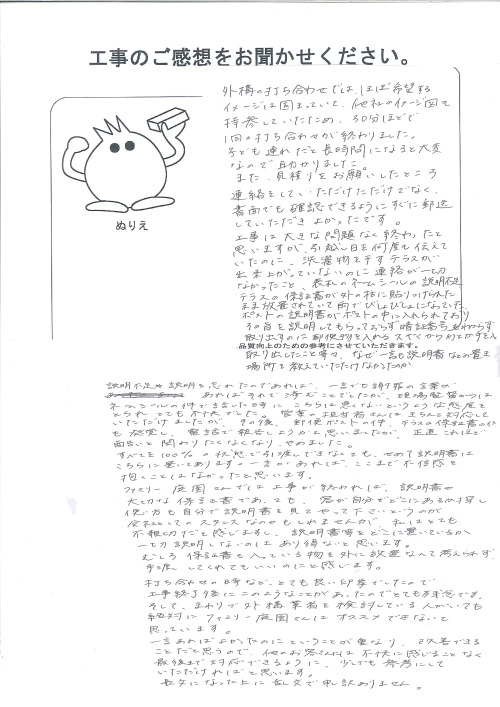 工事のご感想をお聞かせください。
外構の打ち合わせでは、ほぼ希望する
イメージは固まっていて、他社のイメージ図を
持参していたため、30分ほどで
1回の打ち合わせが終わりました。
子ども連れだと長時間になると大変
なので助かりました。
また、見積りをお願いしたところ
連絡をしていただけただけでなく、
書面でも確認できるようにすぐに郵送
していただきよかったです。
工事は大きな問題なく終わったと
思いますが、引越し日を何度も伝えて
いたのに、洗濯物を干すテラスが
出来上がっていないのに連絡が一切
なかったこと、表札のネームシールの説明不足
テラスの保証書が外の柱に貼りつけられた
まま放置されていて雨でびしょびしょになっていた、
ポストの説明書がポストの中に入れられており
その旨を説明してもらっておらず暗証番号もわからず
取り出すのに郵便物を入れるスキマから
品質向上のための参考にさせていただきます。
取り出したこと等々、なぜ一言も説明書などの置き
場所を教えていただけなかったか
ぬりえ
説明不足や説明を忘れたのであれば、一言でも謝罪の言葉が
あればそれで済むことでしたが、現場監督からは
ネームシールの件で言った時に こちらは悪くないというような態度を
とられ、とても不快でした。営業の担当者さんはきちんと対応して
いただけましたが、その後、郵便ポストの件、テラスの保証書の件
も発覚し、電話で報告しようかと思いましたが、正直これほど
面倒と関わりたくなくなり、やめました。
すべてを100%の状態で引渡しできなくても、せめて説明書は
こちらに置いてありますの一言があれば、ここまで不信感を
抱くことはなかったと思います。
ファミリー庭園さんでは工事が終われば、説明書や
大切な保証書であっても、客が自分でどこにあるか探し
使い方も自分で説明書を見てやって下さいというのが
会社としてのスタンスなのかもしれませんが、私はとても
不親切だと感じますし、説明書等をどこに置いているか
一切説明しないのはあり得ないと思います。
むしろ保証書も入っている物を外に放置なんて考えられず、
手渡ししてくれてもいいのにと感じます。
打ち合わせの時など、とても良い印象でしたので
工事終了後にこのようなことがあったのでとても残念です。
そして、まわりで外構業者を検討している人がいても
絶対にファミリー庭園さんはオススメできないと
思っています。
一言あればよかったのにということが重なり、改善できる
ことだと思うので、他のお客さんには不快に感じることなく
最後まで対応できるように、少しでも参考にして
いただければと思います。
長文になった上に乱文で申し訳ありません。